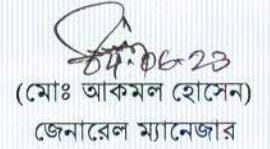 04.06-23
(মোঃ আকমল হোসেন)
জেনারেল ম্যানেজার